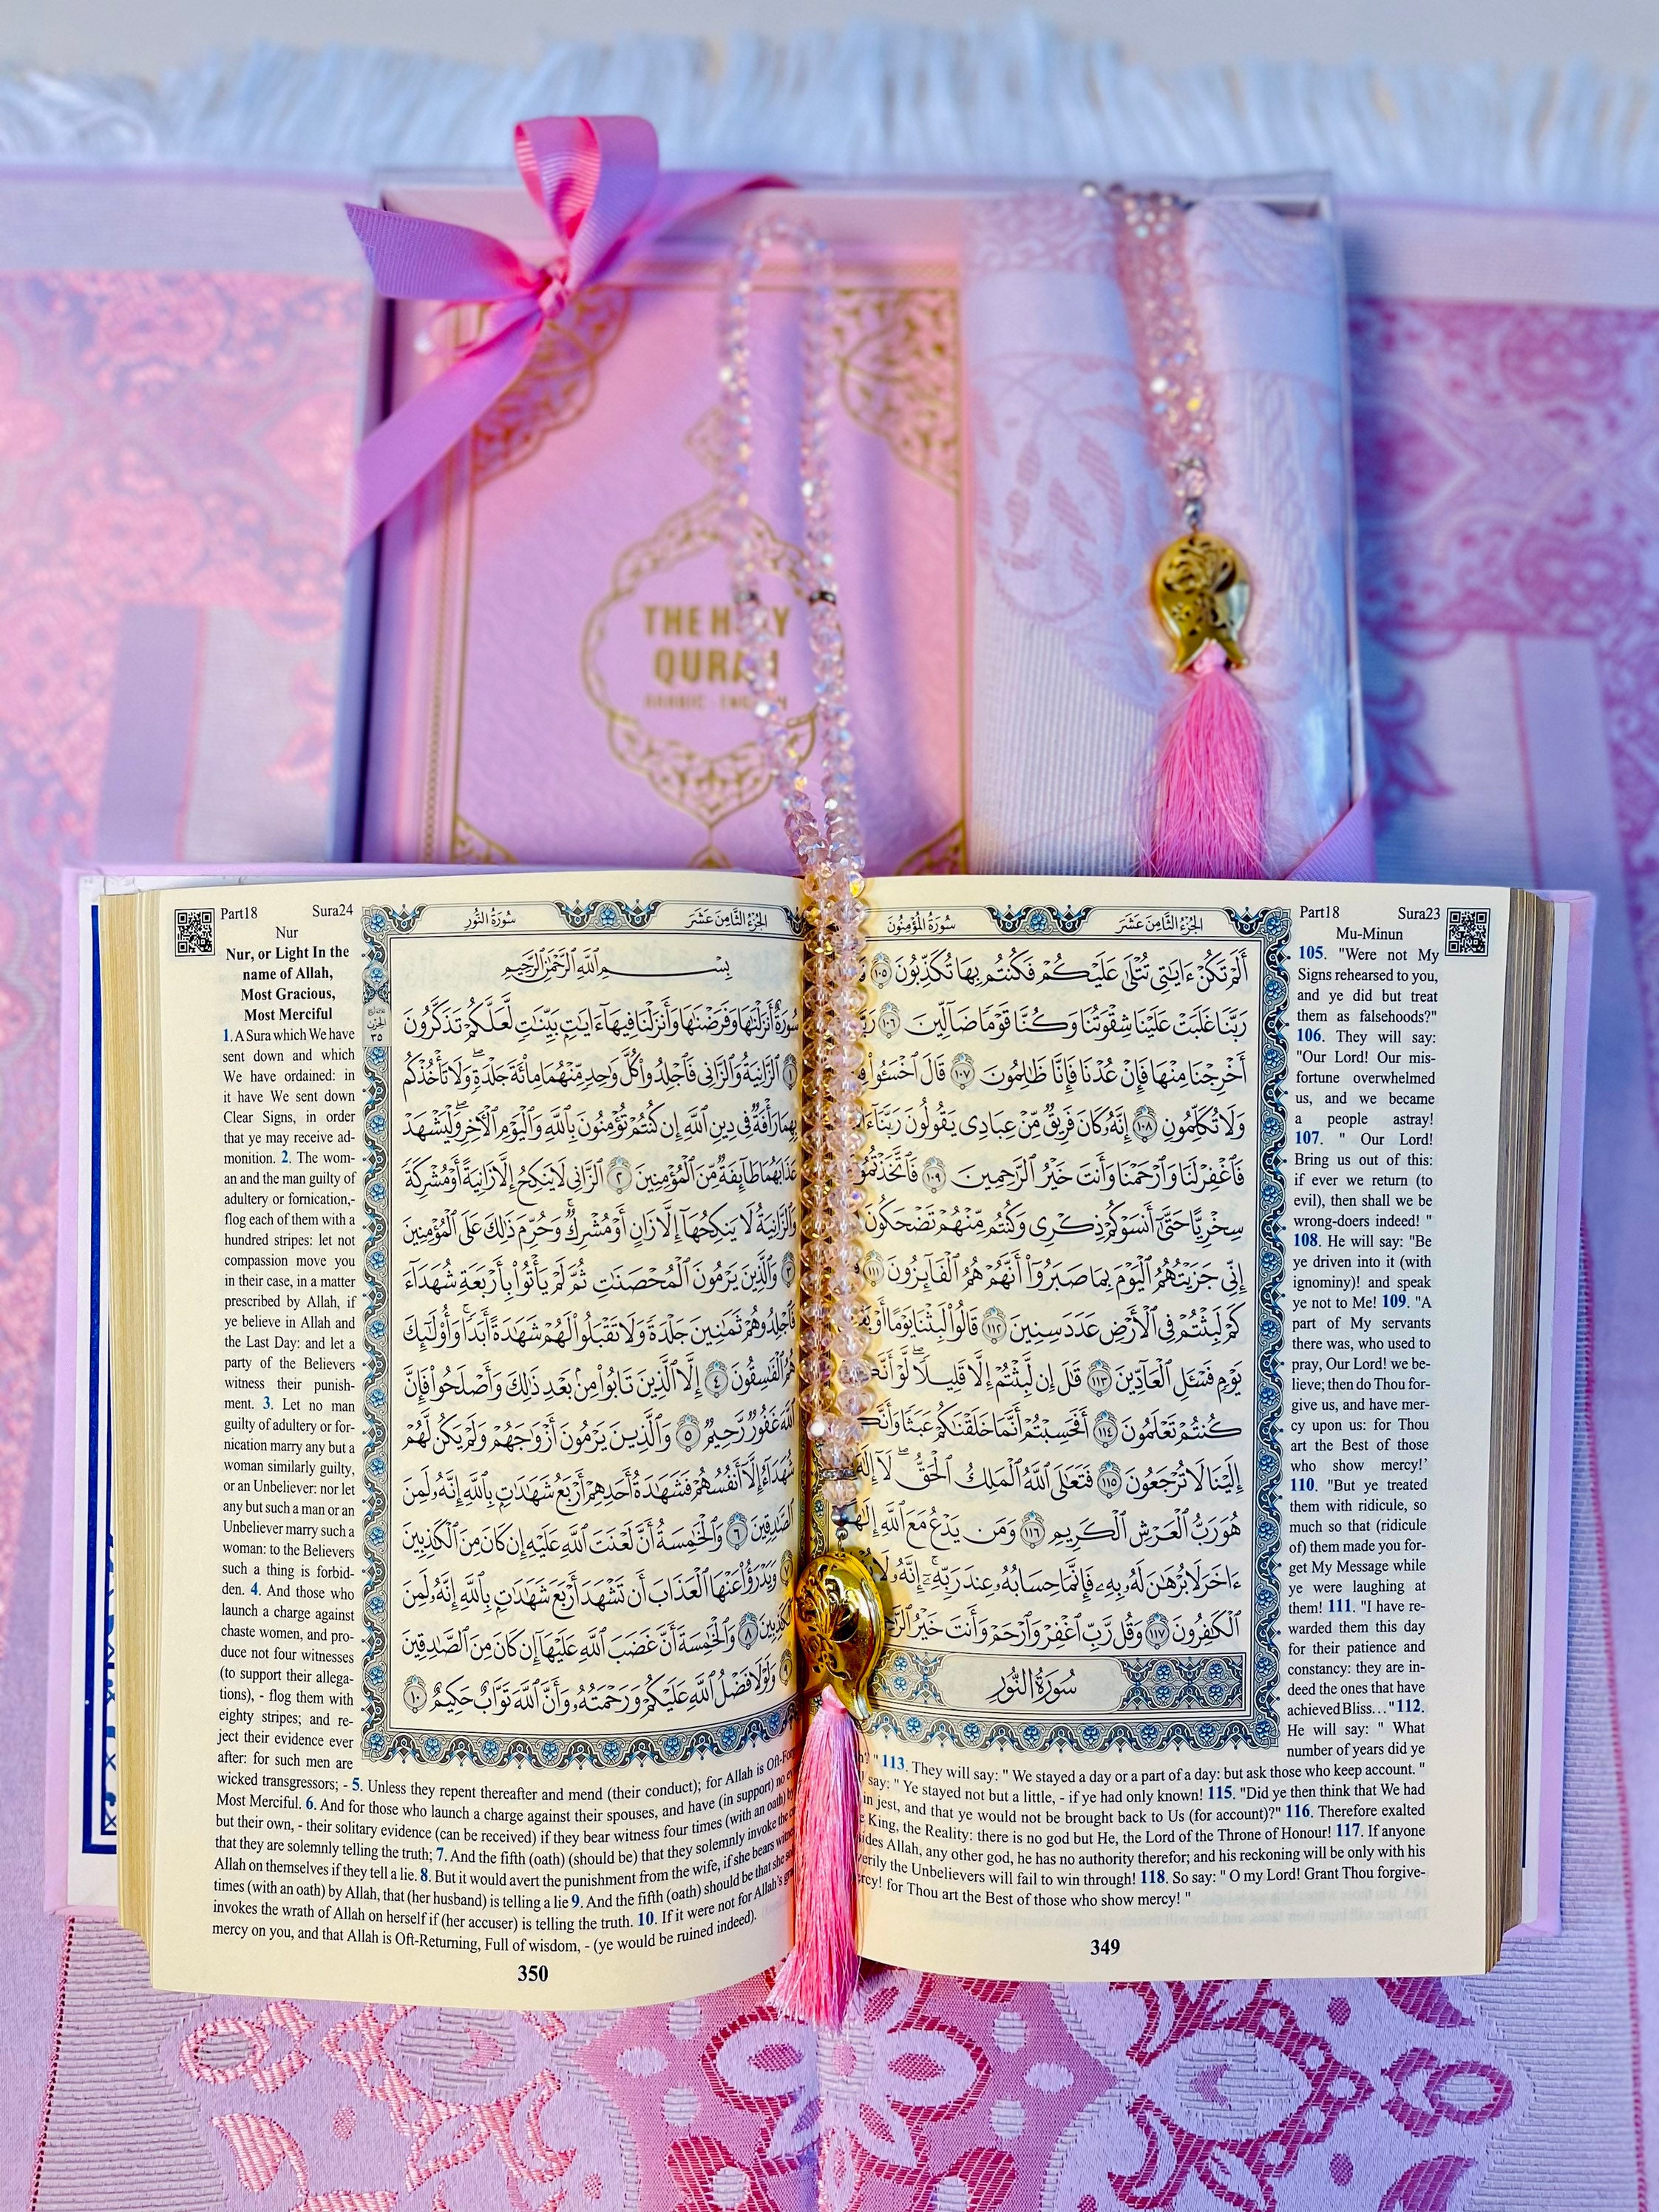 THE H
QURA
Part18 Sura23
Mu-Minun
الجزء الثامن عشر سورة المؤمنون
أَلَمْ تَكُنْ ءَايَٰتِى تُتْلَىٰ عَلَيْكُمْ فَكُنتُم بِهَا تُكَذِّبُونَ ١٠٥
رَبَّنَا غَلَبَتْ عَلَيْنَا شِقْوَتُنَا وَكُنَّا قَوْمًا ضَآلِّينَ ١٠٦
أَخْرِجْنَا مِنْهَا فَإِنْ عُدْنَا فَإِنَّا ظَٰلِمُونَ ١٠٧ قَالَ ٱخْسَـُٔوا۟
وَلَا تُكَلِّمُونِ ١٠٨ إِنَّهُۥ كَانَ فَرِيقٌ مِّنْ عِبَادِى يَقُولُونَ رَبَّنَآ
فَٱغْفِرْ لَنَا وَٱرْحَمْنَا وَأَنتَ خَيْرُ ٱلرَّٰحِمِينَ ١٠٩
سِخْرِيًّا حَتَّىٰٓ أَنسَوْكُمْ ذِكْرِى وَكُنتُم مِّنْهُمْ تَضْحَكُونَ
إِنِّى جَزَيْتُهُمُ ٱلْيَوْمَ بِمَا صَبَرُوٓا۟ أَنَّهُمْ هُمُ ٱلْفَآئِزُونَ ١١١
كَمْ لَبِثْتُمْ فِى ٱلْأَرْضِ عَدَدَ سِنِينَ ١١٢ قَالُوا۟ لَبِثْنَا يَوْمًا
يَوْمٍ فَسْـَٔلِ ٱلْعَآدِّينَ ١١٣ قَٰلَ إِن لَّبِثْتُمْ إِلَّا قَلِيلًا لَّوْ
كُنتُمْ تَعْلَمُونَ ١١٤ أَفَحَسِبْتُمْ أَنَّمَا خَلَقْنَٰكُمْ عَبَثًا
إِلَيْنَا لَا تُرْجَعُونَ ١١٥ فَتَعَٰلَى ٱللَّهُ ٱلْمَلِكُ ٱلْحَقُّ لَآ إِلَٰهَ
هُوَ رَبُّ ٱلْعَرْشِ ٱلْكَرِيمِ ١١٦ وَمَن يَدْعُ مَعَ ٱللَّهِ إِلَٰهًا
ءَاخَرَ لَا بُرْهَٰنَ لَهُۥ بِهِۦ فَإِنَّمَا حِسَابُهُۥ عِندَ رَبِّهِۦٓ إِنَّهُۥ لَا
ٱلْكَٰفِرُونَ ١١٧ وَقُل رَّبِّ ٱغْفِرْ وَٱرْحَمْ وَأَنتَ خَيْرُ
سُورَةُ النُّورِ
105. "Were not My
Signs rehearsed to you,
and ye did but treat
them as falsehoods?"
106. They will say:
"Our Lord! Our mis-
fortune overwhelmed
us, and we became
a people astray!
107. " Our Lord!
Bring us out of this:
if ever we return (to
evil), then shall we be
wrong-doers indeed! "
108. He will say: "Be
ye driven into it (with
ignominy)! and speak
ye not to Me! 109. "A
part of My servants
there was, who used to
pray, Our Lord! we be-
lieve; then do Thou for-
give us, and have mer-
cy upon us: for Thou
art the Best of those
who show mercy!'
110. "But ye treated
them with ridicule, so
much so that (ridicule
of) them made you for-
get My Message while
ye were laughing at
them! 111. "I have re-
warded them this day
for their patience and
constancy: they are in-
deed the ones that have
achieved Bliss..." 112.
He will say: " What
number of years did ye
" 113. They will say: " We stayed a day or a part of a day: but ask those who keep account. "
say: " Ye stayed not but a little, - if ye had only known! 115. "Did ye then think that We had
in jest, and that ye would not be brought back to Us (for account)?" 116. Therefore exalted
King, the Reality: there is no god but He, the Lord of the Throne of Honour! 117. If anyone
Allah, any other god, he has no authority therefor; and his reckoning will be only with his
the Unbelievers will fail to win through! 118. So say: " O my Lord! Grant Thou forgive-
for Thou art the Best of those who show mercy! "
349
Part18 Sura24
Nur
Nur, or Light In the
name of Allah,
Most Gracious,
Most Merciful
الجزء الثامن عشر سورة النور
بِسْمِ ٱللَّهِ ٱلرَّحْمَٰنِ ٱلرَّحِيمِ
سُورَةٌ أَنزَلْنَٰهَا وَفَرَضْنَٰهَا وَأَنزَلْنَا فِيهَآ ءَايَٰتٍۭ بَيِّنَٰتٍ لَّعَلَّكُمْ تَذَكَّرُونَ
١ ٱلزَّانِيَةُ وَٱلزَّانِى فَٱجْلِدُوا۟ كُلَّ وَٰحِدٍ مِّنْهُمَا مِا۟ئَةَ جَلْدَةٍ وَلَا تَأْخُذْكُم
بِهِمَا رَأْفَةٌ فِى دِينِ ٱللَّهِ إِن كُنتُمْ تُؤْمِنُونَ بِٱللَّهِ وَٱلْيَوْمِ ٱلْءَاخِرِ وَلْيَشْهَدْ
عَذَابَهُمَا طَآئِفَةٌ مِّنَ ٱلْمُؤْمِنِينَ ٢ ٱلزَّانِى لَا يَنكِحُ إِلَّا زَانِيَةً أَوْ مُشْرِكَةً
وَٱلزَّانِيَةُ لَا يَنكِحُهَآ إِلَّا زَانٍ أَوْ مُشْرِكٌ وَحُرِّمَ ذَٰلِكَ عَلَى ٱلْمُؤْمِنِينَ
٣ وَٱلَّذِينَ يَرْمُونَ ٱلْمُحْصَنَٰتِ ثُمَّ لَمْ يَأْتُوا۟ بِأَرْبَعَةِ شُهَدَآءَ
فَٱجْلِدُوهُمْ ثَمَٰنِينَ جَلْدَةً وَلَا تَقْبَلُوا۟ لَهُمْ شَهَٰدَةً أَبَدًا وَأُو۟لَٰٓئِكَ
هُمُ ٱلْفَٰسِقُونَ ٤ إِلَّا ٱلَّذِينَ تَابُوا۟ مِنۢ بَعْدِ ذَٰلِكَ وَأَصْلَحُوا۟ فَإِنَّ
ٱللَّهَ غَفُورٌ رَّحِيمٌ ٥ وَٱلَّذِينَ يَرْمُونَ أَزْوَٰجَهُمْ وَلَمْ يَكُن لَّهُمْ
شُهَدَآءُ إِلَّآ أَنفُسُهُمْ فَشَهَٰدَةُ أَحَدِهِمْ أَرْبَعُ شَهَٰدَٰتٍۭ بِٱللَّهِ إِنَّهُۥ لَمِنَ
ٱلصَّٰدِقِينَ ٦ وَٱلْخَٰمِسَةُ أَنَّ لَعْنَتَ ٱللَّهِ عَلَيْهِ إِن كَانَ مِنَ ٱلْكَٰذِبِينَ
٧ وَيَدْرَؤُا۟ عَنْهَا ٱلْعَذَابَ أَن تَشْهَدَ أَرْبَعَ شَهَٰدَٰتٍۭ بِٱللَّهِ إِنَّهُۥ لَمِنَ
ٱلْكَٰذِبِينَ ٨ وَٱلْخَٰمِسَةَ أَنَّ غَضَبَ ٱللَّهِ عَلَيْهَآ إِن كَانَ مِنَ ٱلصَّٰدِقِينَ
٩ وَلَوْلَا فَضْلُ ٱللَّهِ عَلَيْكُمْ وَرَحْمَتُهُۥ وَأَنَّ ٱللَّهَ تَوَّابٌ حَكِيمٌ ١٠
الحزب
٣٥
1. A Sura which We have
sent down and which
We have ordained: in
it have We sent down
Clear Signs, in order
that ye may receive ad-
monition. 2. The wom-
an and the man guilty of
adultery or fornication,-
flog each of them with a
hundred stripes: let not
compassion move you
in their case, in a matter
prescribed by Allah, if
ye believe in Allah and
the Last Day: and let a
party of the Believers
witness their punish-
ment. 3. Let no man
guilty of adultery or for-
nication marry any but a
woman similarly guilty,
or an Unbeliever: nor let
any but such a man or an
Unbeliever marry such a
woman: to the Believers
such a thing is forbid-
den. 4. And those who
launch a charge against
chaste women, and pro-
duce not four witnesses
(to support their allega-
tions), - flog them with
eighty stripes; and re-
ject their evidence ever
after: for such men are
wicked transgressors; - 5. Unless they repent thereafter and mend (their conduct); for Allah is
Most Merciful. 6. And for those who launch a charge against their spouses, and have (in support) no
but their own, - their solitary evidence (can be received) if they bear witness four times (with an oath)
that they are solemnly telling the truth; 7. And the fifth (oath) (should be) that they solemnly invoke the
Allah on themselves if they tell a lie. 8. But it would avert the punishment from the wife, if she bears
times (with an oath) by Allah, that (her husband) is telling a lie 9. And the fifth (oath) should be that she
invokes the wrath of Allah on herself if (her accuser) is telling the truth. 10. If it were not for Allah's
mercy on you, and that Allah is Oft-Returning, Full of wisdom, - (ye would be ruined indeed).
350